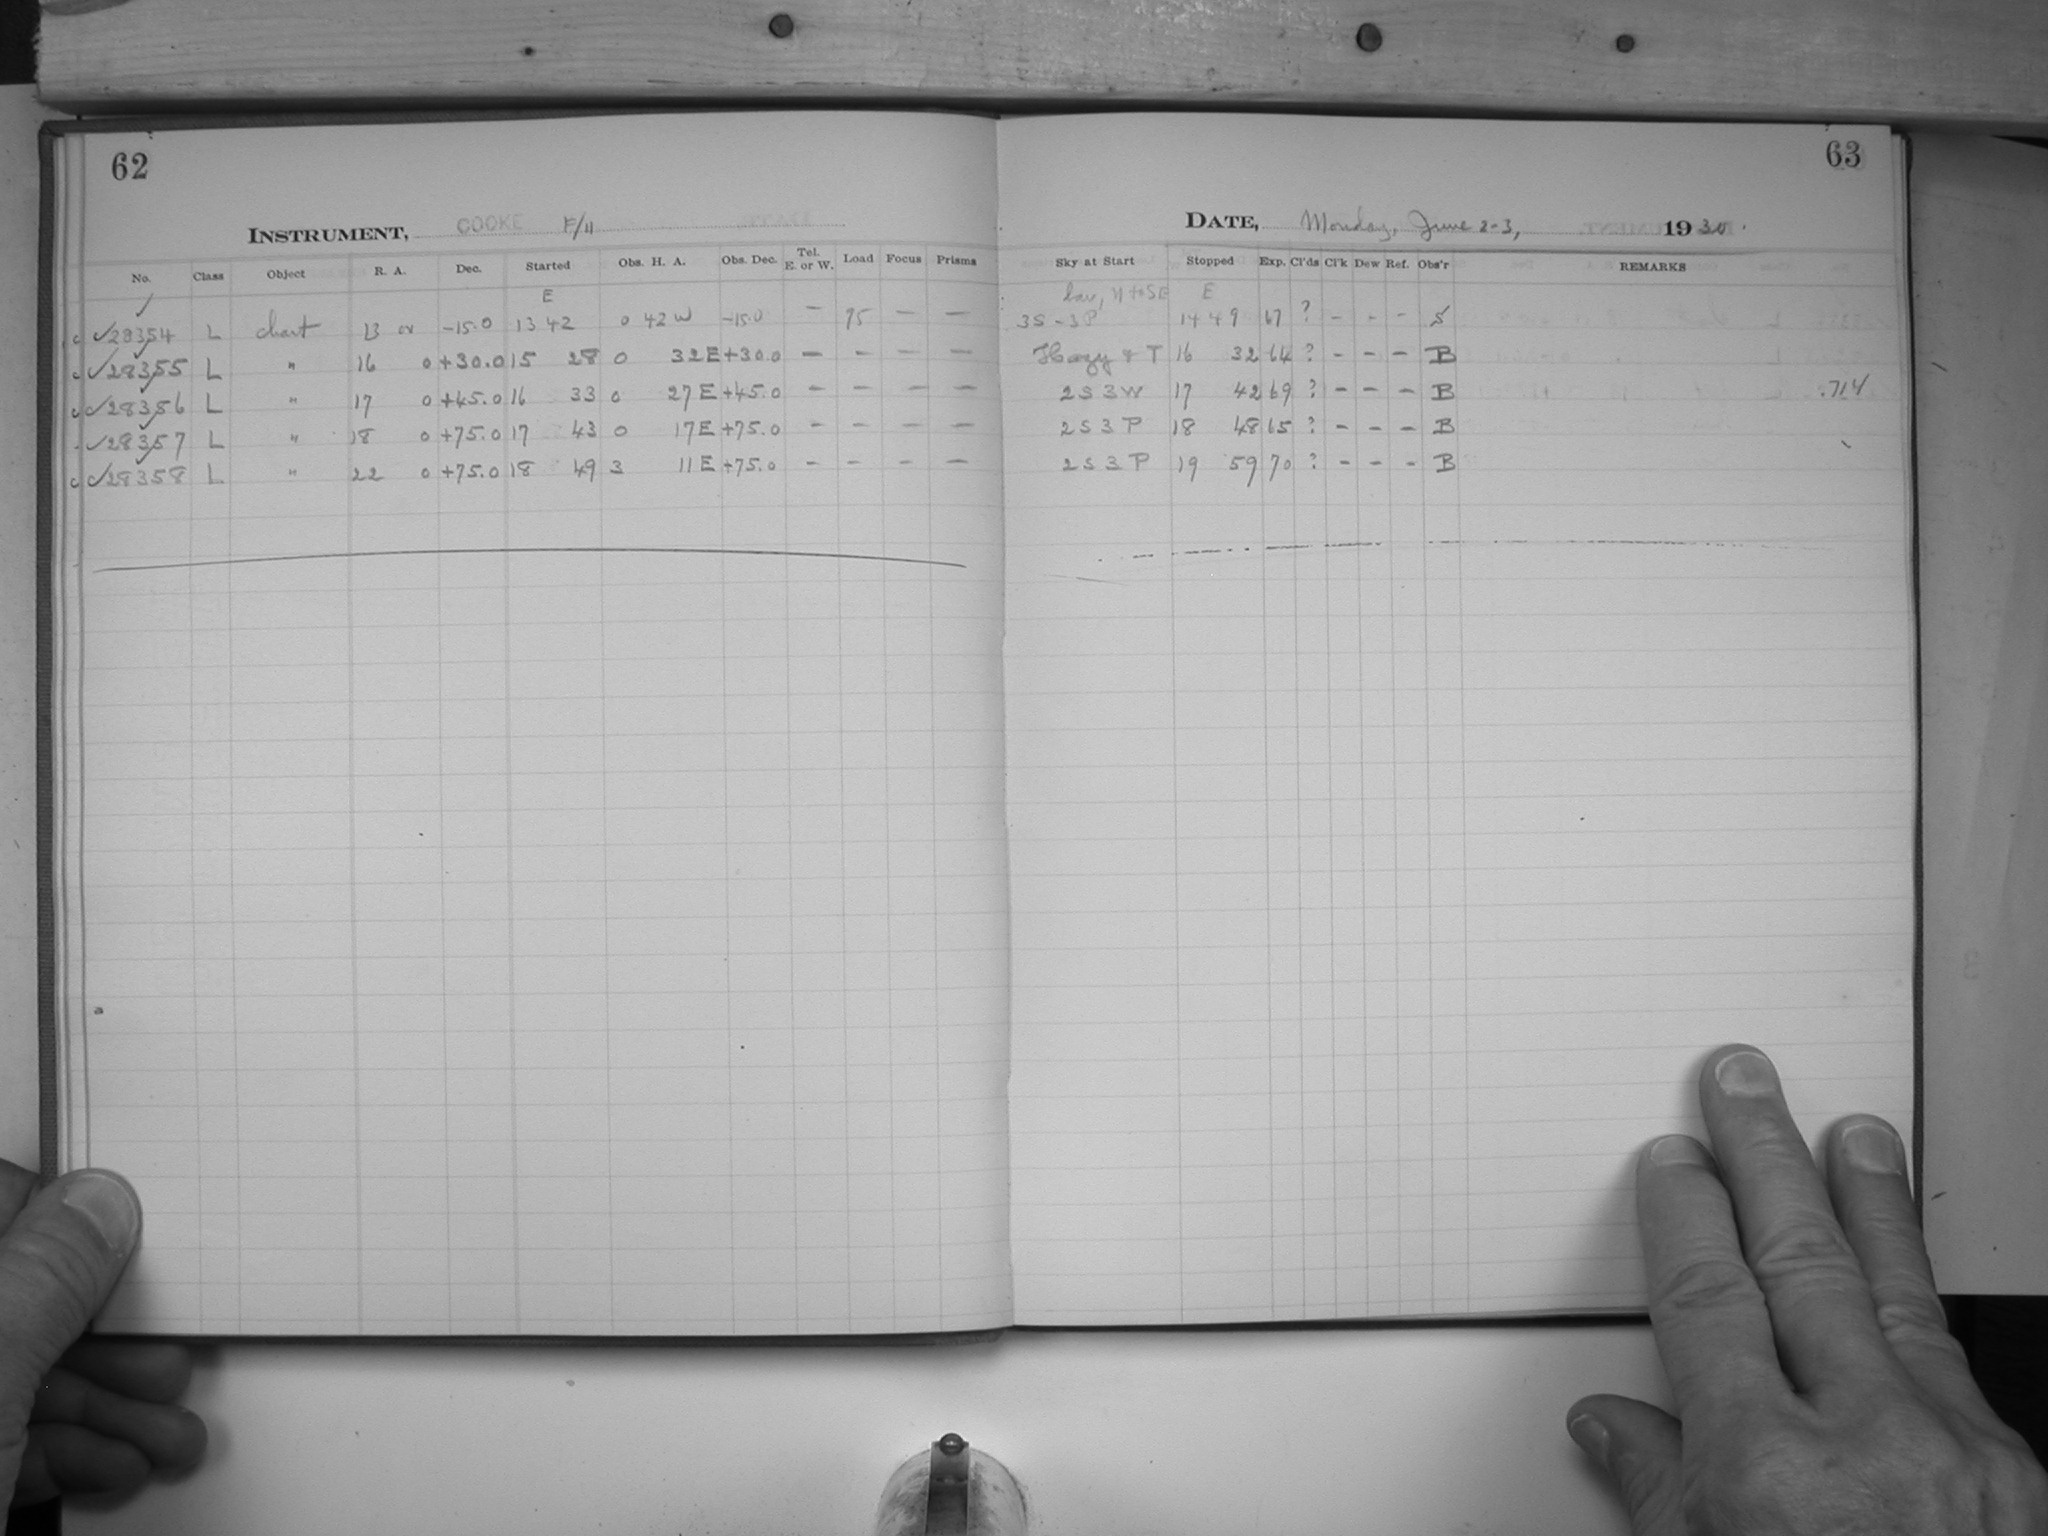 62
INSTRUMENT, COOKE F/11
No. Class Object R. A. Dec. Started Obs. H. A. Obs. Dec. Tel. E. or W. Load Focus Prisms
E
28354 L chart 13 -15.0 13 42 0 42 W -15.0 — — —
28355 L " 16 0 +30.0 15 28 0 32 E +30.0 — — — —
28356 L " 17 0 +45.0 16 33 0 27 E +45.0 — — — —
28357 L " 18 0 +75.0 17 43 0 17 E +75.0 — — — —
28358 L " 22 0 +75.0 18 49 3 11 E +75.0 — — — —
63
DATE, Monday, June 2-3, 1930.
Sky at Start Stopped Exp. Cl'ds Cl'k Dew Ref. Obs'r REMARKS
E
3S-3P 14 49 67 ? - - - S
Hazy & T 16 32 64 ? - - - B
2 S 3 W 17 42 69 ? - - - B .714
2 S 3 P 18 48 65 ? - - - B
2 S 3 P 19 59 70 ? - - - B